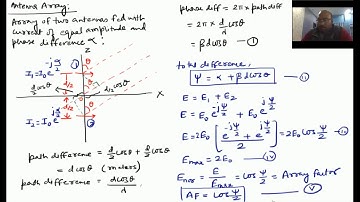 Antenna Array:
Array of two antennas fed with
current of equal amplitude and
phase difference α:
z
I₁=I₀e^(-jα/2) ①
θ
d/2
d/2 cosθ
d/2 cosθ
x
I₂=I₀e^(jα/2) ②
path difference = d/2 cosθ + d/2 cosθ
= d cosθ (meters)
path difference = d cosθ/λ
phase diff = 2π × path diff
= 2π × d cosθ/λ
= β d cosθ — ①
total difference,
Ψ = α + β d cosθ — ⅱ
E = E₁ + E₂
E = E₀ e^(-jΨ/2) + E₀ e^(jΨ/2)
E = 2E₀ [e^(-jΨ/2) + e^(jΨ/2) / 2] = 2E₀ cos Ψ/2 — ⅲ
Emax = 2E₀ — ⅳ
Enor = E/Emax = cos Ψ/2 = Array factor
AF = cos Ψ/2 — ⅴ